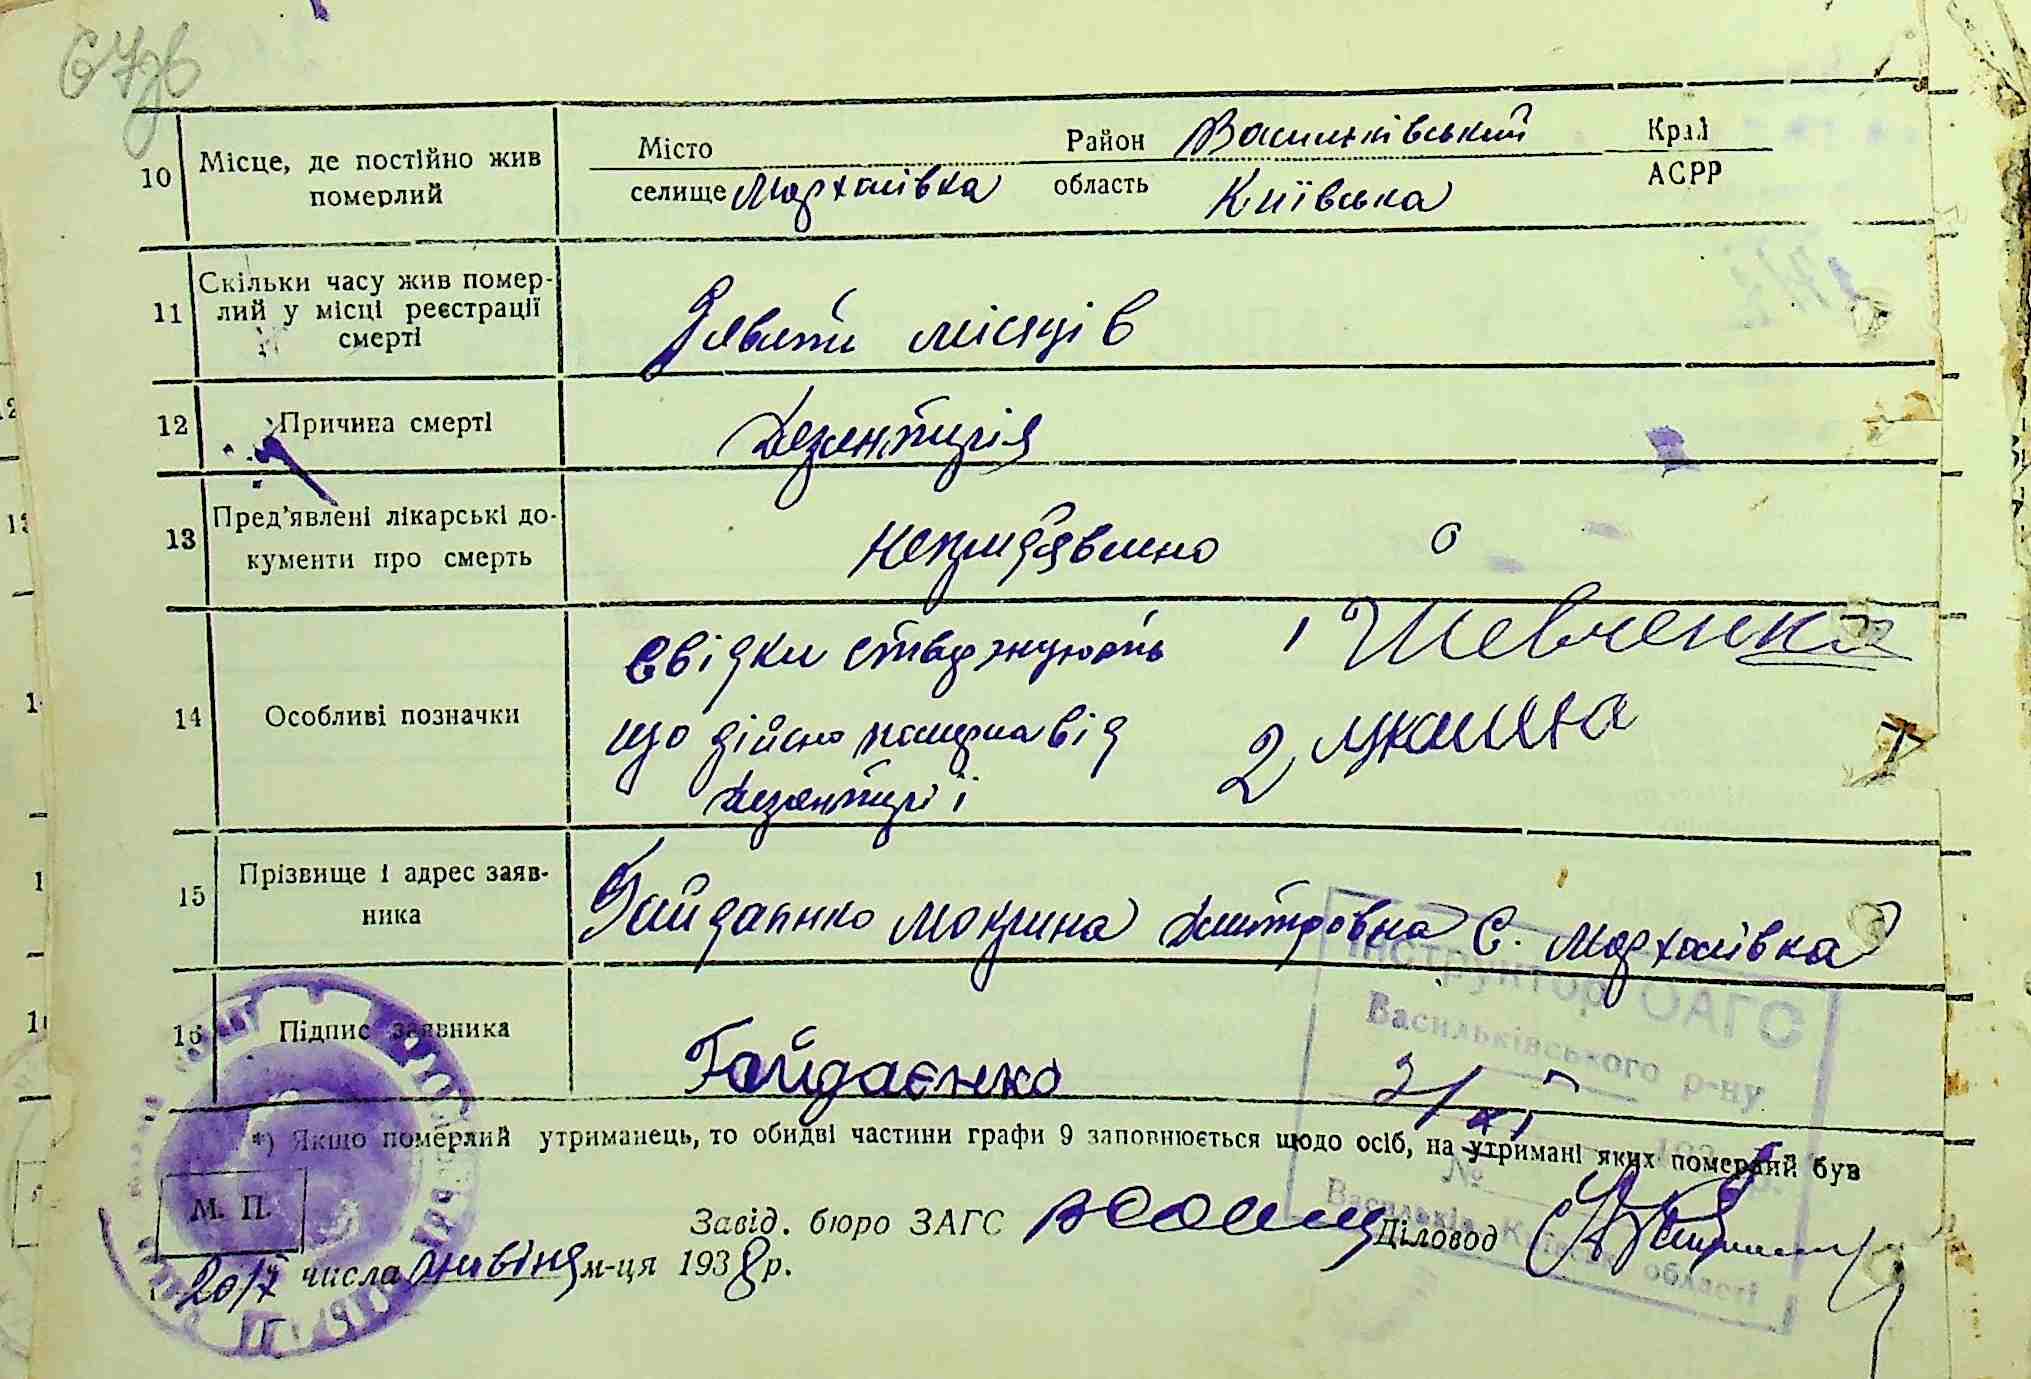 67зв
10 Місце, де постійно жив померлий Місто Район Васильківський Край
селище Мархалівка область Київська АСРР
11 Скільки часу жив помер-
лий у місці реєстрації
смерті
Девяти місяців
12 Причина смерті Дезентирія
13 Пред'явлені лікарські до-
кументи про смерть
непридявлено
14 Особливі позначки
Свідки стверджують 1 Шевченко
що дійсно померла від 2
дезентирії
15 Прізвище і адрес заяв-
ника
Гайдаєнко Мокрина Дмитровна С. Мархалівка
16 Підпис заявника Гайдаєнко
Інструктор ОАГС
Васильківського р-ну
193 р.
№
Васильків, Київської області
*) Якщо померлий утриманець, то обидві частини графи 9 заповнюється щодо осіб, на утримані яких померлий був
М. П.
Завід. бюро ЗАГС Діловод
числа м-ця 1938 р.